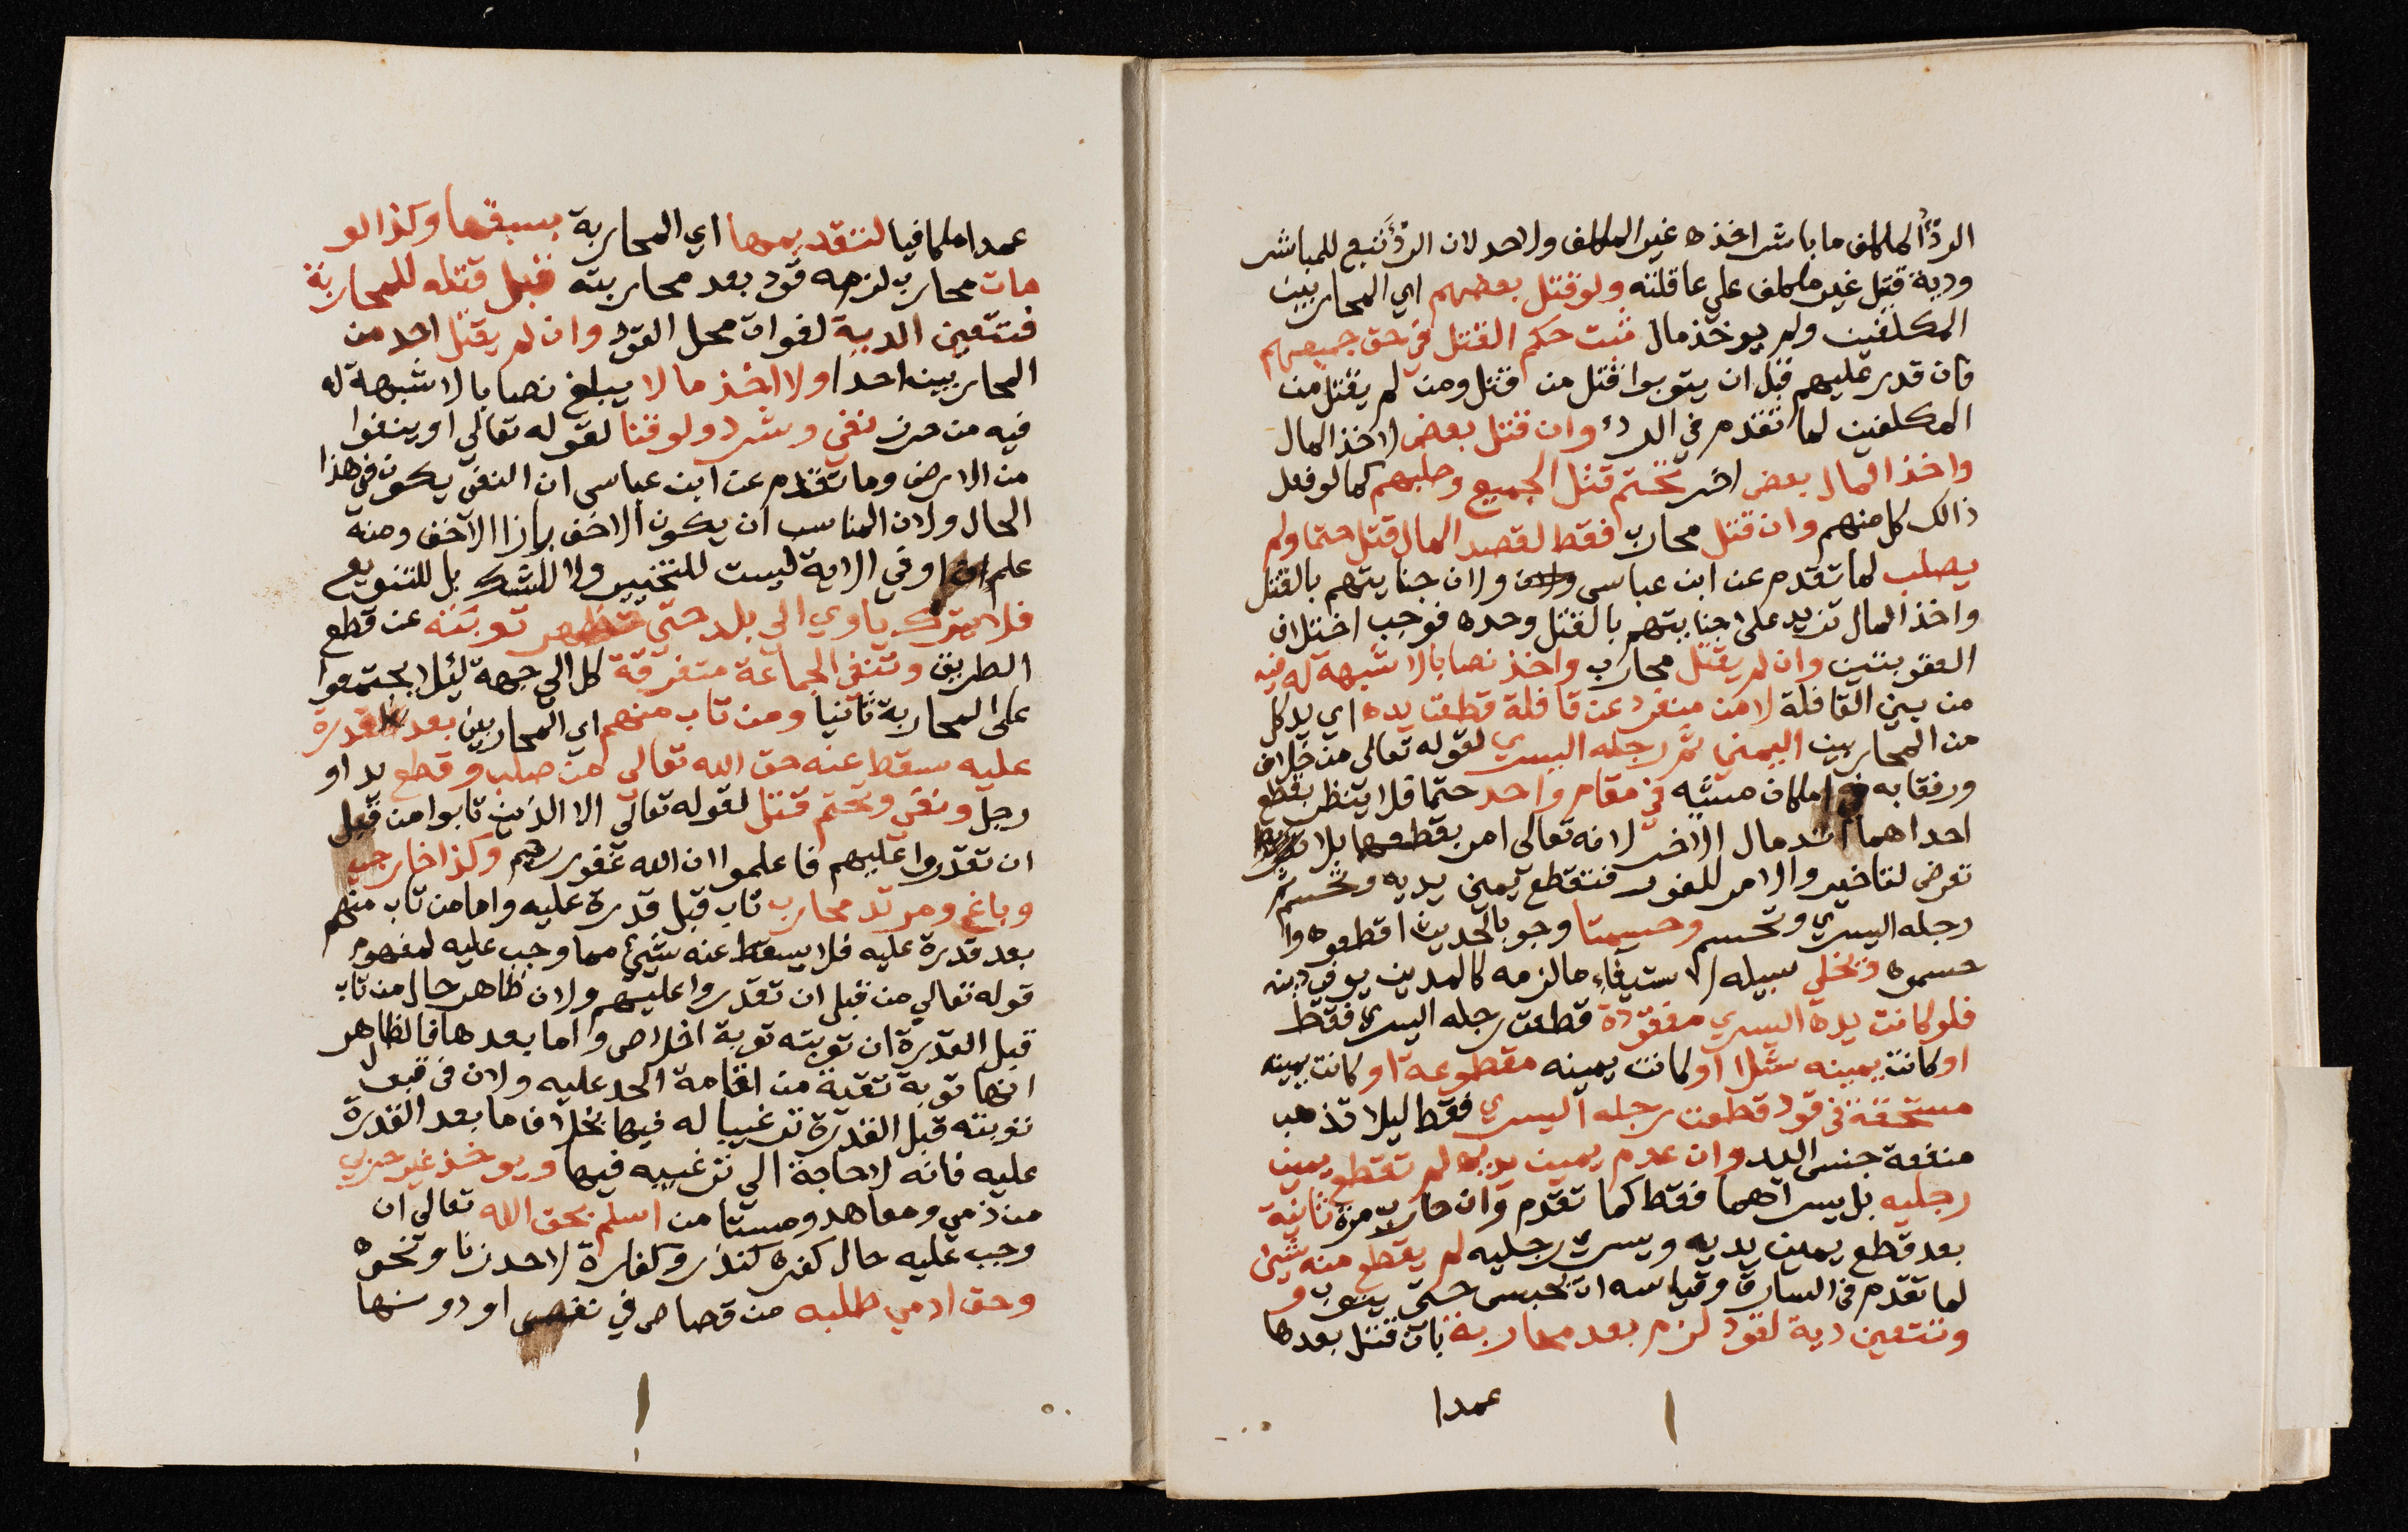 الردؤ المكلف ما باشر اخذه غير المكلف ولاحد لان الردؤ تبع للمباشر
ودية قتل غير مكلف علي عاقلته ولو قتل بعضهم اي المحاربين
المكلفين ولم يوخذ مال ثبت حكم القتل في حق جميعهم
فان قدر عليهم قبل ان يتوبوا قتل من قتل ومن لم يقتل من
المكلفين لما تقدم في الردء وان قتل بعض لاخذ المال
واخذ المال بعض اخر تحتم قتل الجميع وصلبهم كما لو فعل
ذالك كل منهم وان قتل محارب فقط لقصد المال قتل حتما ولم
يصلب لما تقدم عن ابن عباس ولان جنايتهم بالقتل
واخذ المال تزيد على جنايتهم بالقتل وحده فوجب اختلاف
العقوبتين وان لم يقتل محارب واخذ نصابا لا شبهة له فيه
من بين القافلة لا من منفرد عن قافلة قطعت يده اي يد كل
من المحاربين اليمني ثم رجله اليسري لقوله تعالى من خلاف
ورفقا به في امكان مشيه في مقام واحد حتما فلا ينتظر بقطع
احداهما اندمال الاخر لانه تعالى امر بقطعهما بلا
تعرض لتاخير والامر للفور فتقطع يمين يديه وتحسم ثم
رجله اليسري وتحسم وحسمتا وجوبا لحديث اقطعوه وا
حسموه وخلي سبيله لاستيفاء ما لزمه كالمدين يوفي دينه
فلو كانت يده اليسري مفقودة قطعت رجله اليسري فقط
او كانت يمينه شلا او كانت يمينه مقطوعة او كانت يمينه
مستحقة في قود قطعت رجله اليسري فقط ليلا تذهب
منفعة جنس اليد وان عدم يمين يديه لم تقطع يمين
رجليه بل يسراهما فقط كما تقدم وان حارب مرة ثانية
بعد قطع يمين يديه ويسرى رجليه لم يقطع منه شيئ
لما تقدم في السارق وقياسه ان يحبس حتى يتوب و
وتتعين دية لقود لزم بعد محاربة بان قتل بعدها
عمدا
عمدا مكافيا لتقديمها اي المحاربة بسبقها وكذا لو
مات محارب لزمه قود بعد محاربته قبل قتله للمحاربة
فتتعين الدية لفوات محل القود وان لم يقتل احد من
المحاربين احدا ولا اخذ ما لا يبلغ نصابا لا شبهة له
فيه من حرز نفي وشرد ولو قنا لقوله تعالى او ينفوا
من الارض وما تقدم عن ابن عباس ان النفي يكون في هذا
الحال ولان المناسب ان يكون الاخف بازا الاخف ومنه
علم ان او في الاية ليست للتخيير ولا للشك بل للتنويع
فلا يترك ياوي الي بلد حتى تظهر توبته عن قطع
الطريق وتنفي الجماعة متفرقة كل الي جهة ليلا يجتمعوا
على المحاربة ثانيا ومن تاب منهم اي المحاربين بعد قدرة
عليه سقط عنه حق الله تعالى من صلب وقطع يد او
رجل ونفي وتحتم قتل لقوله تعالي الا الذين تابوا من قبل
ان تقدروا عليهم فاعلموا ان الله غفور رحيم وكذا خارجي
وباغ ومرتد محارب تاب قبل قدرة عليه واما من تاب منهم
بعد قدرة عليه فلا يسقط عنه شيئ مما وجب عليه لمفهوم
قوله تعالي من قبل ان تقدروا عليهم ولان ظاهر حال من تاب
قبل القدرة ان توبته توبة اخلاص واما بعدها فالظاهر
انها توبة تقية من اقامة الحد عليه ولان في قبول
توبته قبل القدرة ترغيبا له فيها بخلاف ما بعد القدرة
عليه فانه لا حاجة الي ترغيبه فيها ويوخذ غير حربي
من ذمي ومعاهد ومستامن اسلم بحق الله تعالى ان
وجب عليه حال كفره كنذر وكفارة لا حد زنا ونحوه
وحق ادمي طلبه من قصاص في نفس او دونها